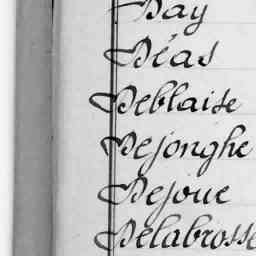 Day
Déas
Deblaise
Dejonghe
Dejoue
Delabrosse